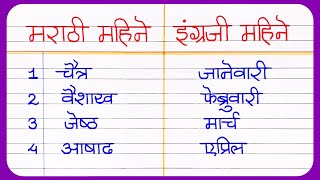 मराठी महिने इंग्रजी महिने
1 चैत्र जानेवारी
2 वैशाख फेब्रुवारी
3 जेष्ठ मार्च
4 आषाढ एप्रिल